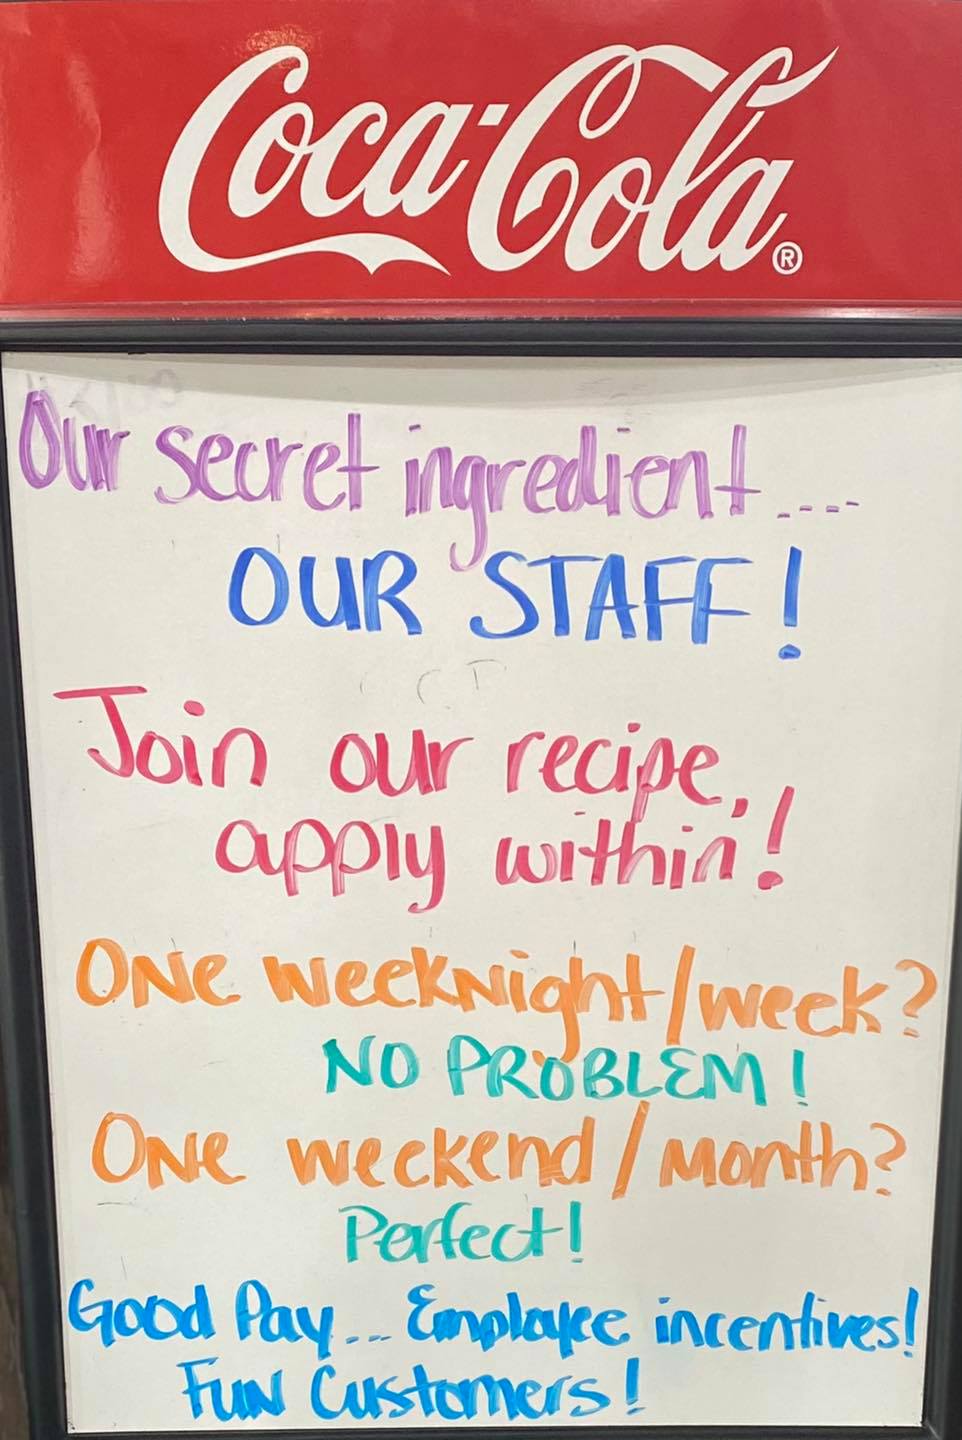 Coca-Cola®
Our secret ingredient....
OUR STAFF!
Join our recipe,
apply within!
ONe weekNight/week?
NO PROBLEM!
ONe weekend/month?
Perfect!
Good Pay... Employee incentives!
FUN Customers!